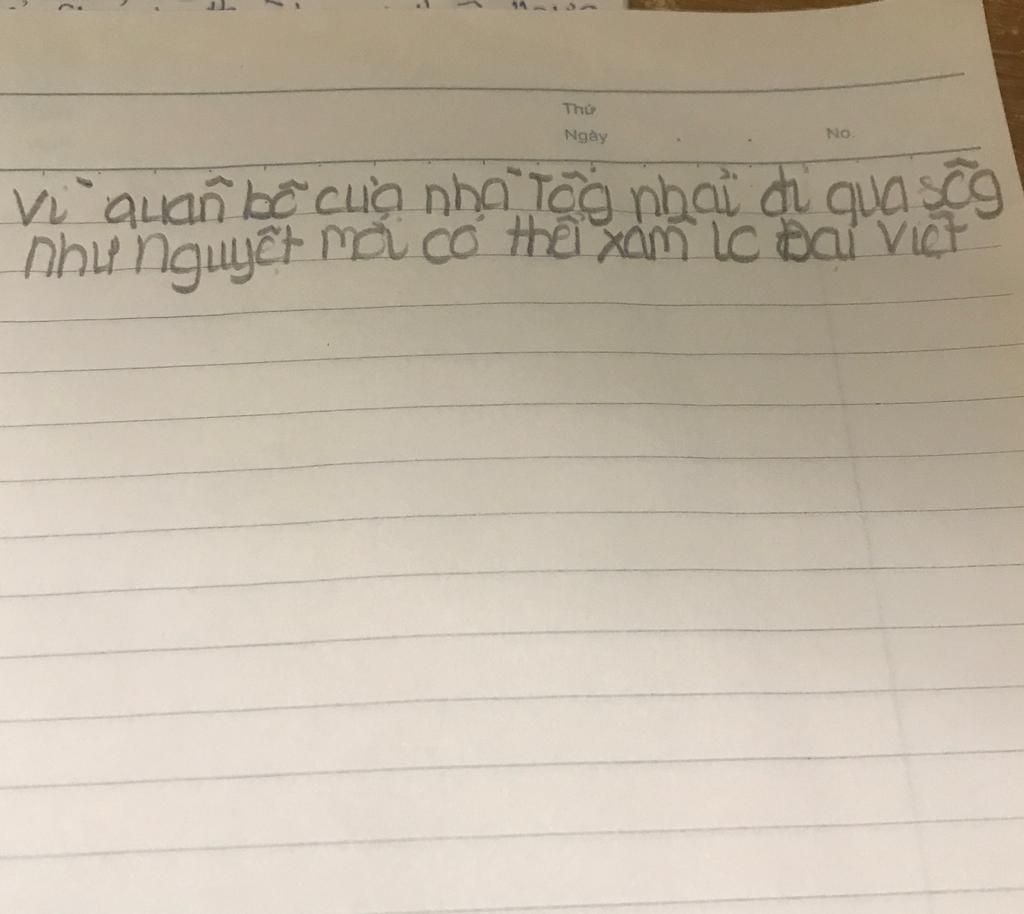 Thứ
Ngày . . No.
Vì quân bô của nhà Tôg nhải đi qua sôg
như nguyệt mới có thể xâm lc Đại Việt